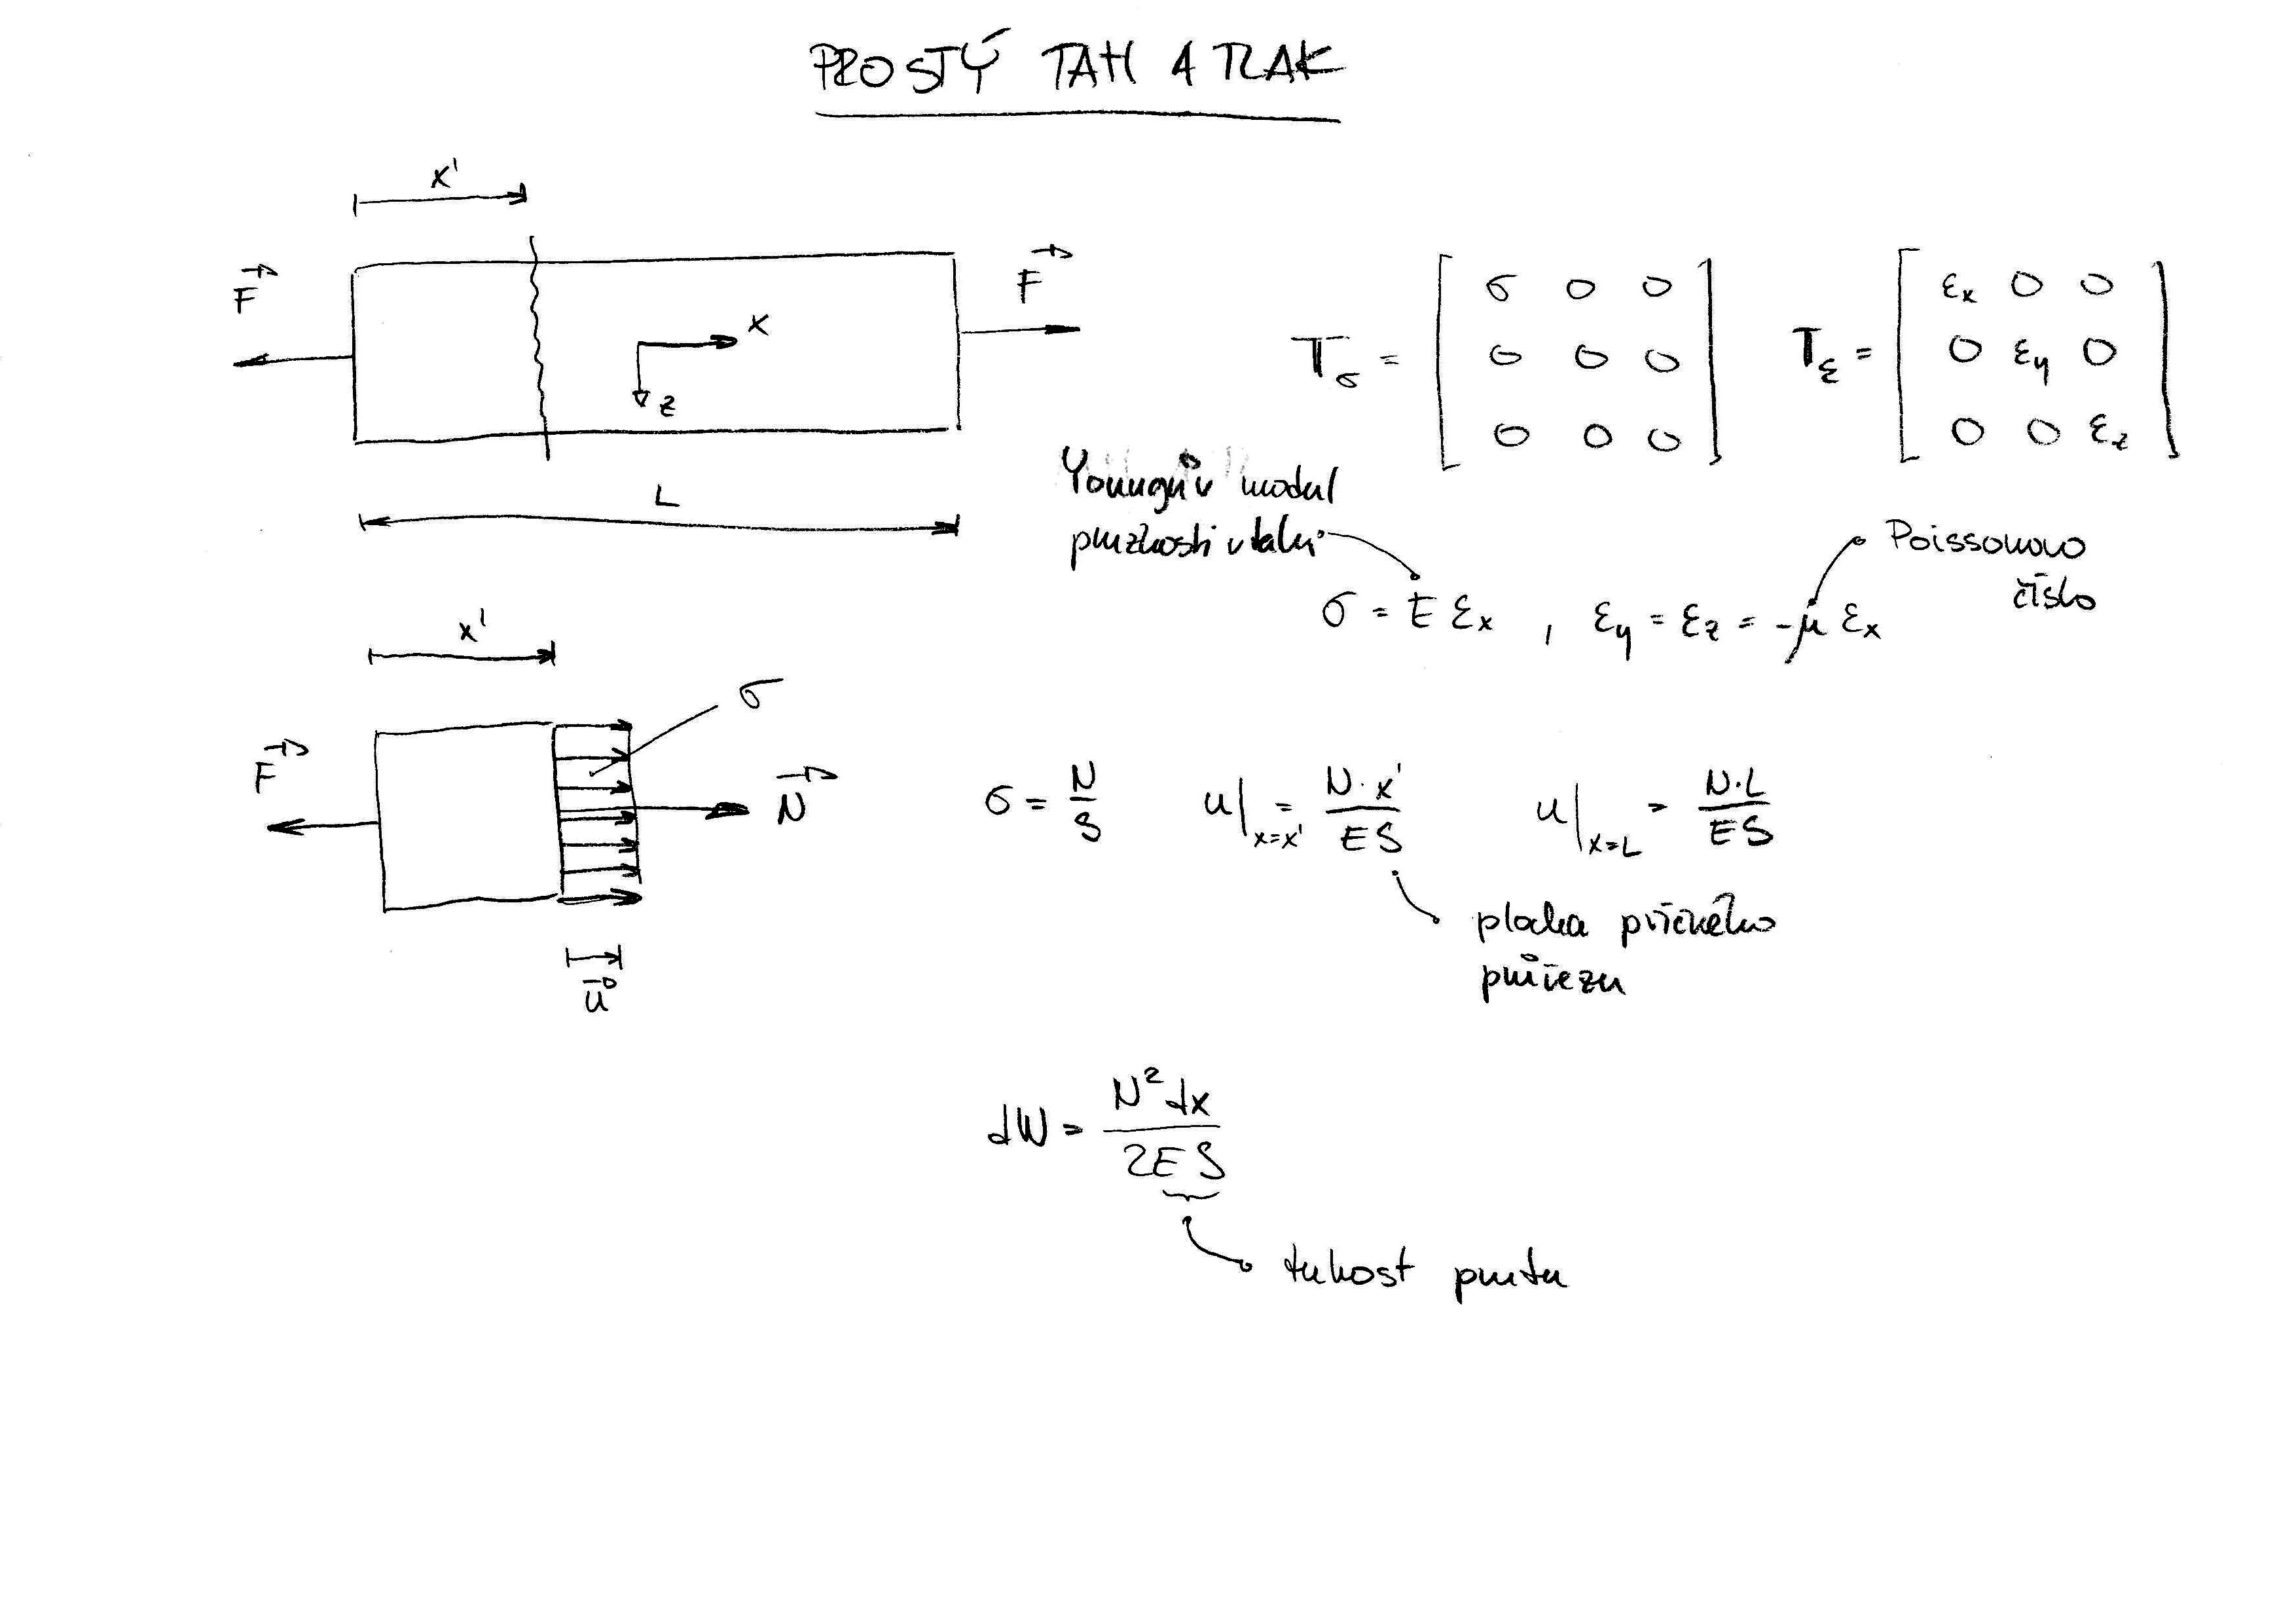 PROSTÝ TAH A TLAK
x'
F
F
x
z
L
T_σ = [ σ 0 0
0 0 0
0 0 0 ]
T_ε = [ ε_x 0 0
0 ε_y 0
0 0 ε_z ]
Youngův modul
pružnosti v tahu
Poissonovo
číslo
σ = E ε_x , ε_y = ε_z = -μ ε_x
x'
σ
F
N
u
σ = N/S
u|_{x=x'} = N·x'/ES
u|_{x=L} = N·L/ES
plocha příčného
průřezu
dW = N² dx / 2ES
tuhost prutu